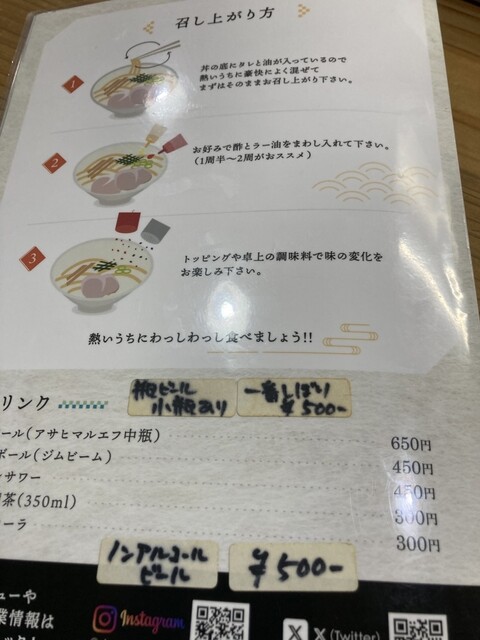 召し上がり方
1
丼の底にタレと油が入っているので
熱いうちに豪快によく混ぜて
まずはそのままお召し上がり下さい。
2
お好みで酢とラー油をまわし入れて下さい。
(1周半〜2周がおススメ)
3
トッピングや卓上の調味料で味の変化を
お楽しみ下さい。
熱いうちにわっしわっし食べましょう!!
リンク
瓶ビール
小瓶あり
一番しぼり
¥500-
ール(アサヒマルエフ中瓶) 650円
ボール(ジムビーム) 450円
サワー 450円
茶(350ml) 300円
ーラ 300円
ノンアルコール
ビール
¥500-
ューや
業情報は
Instagram
X X (Twitter)